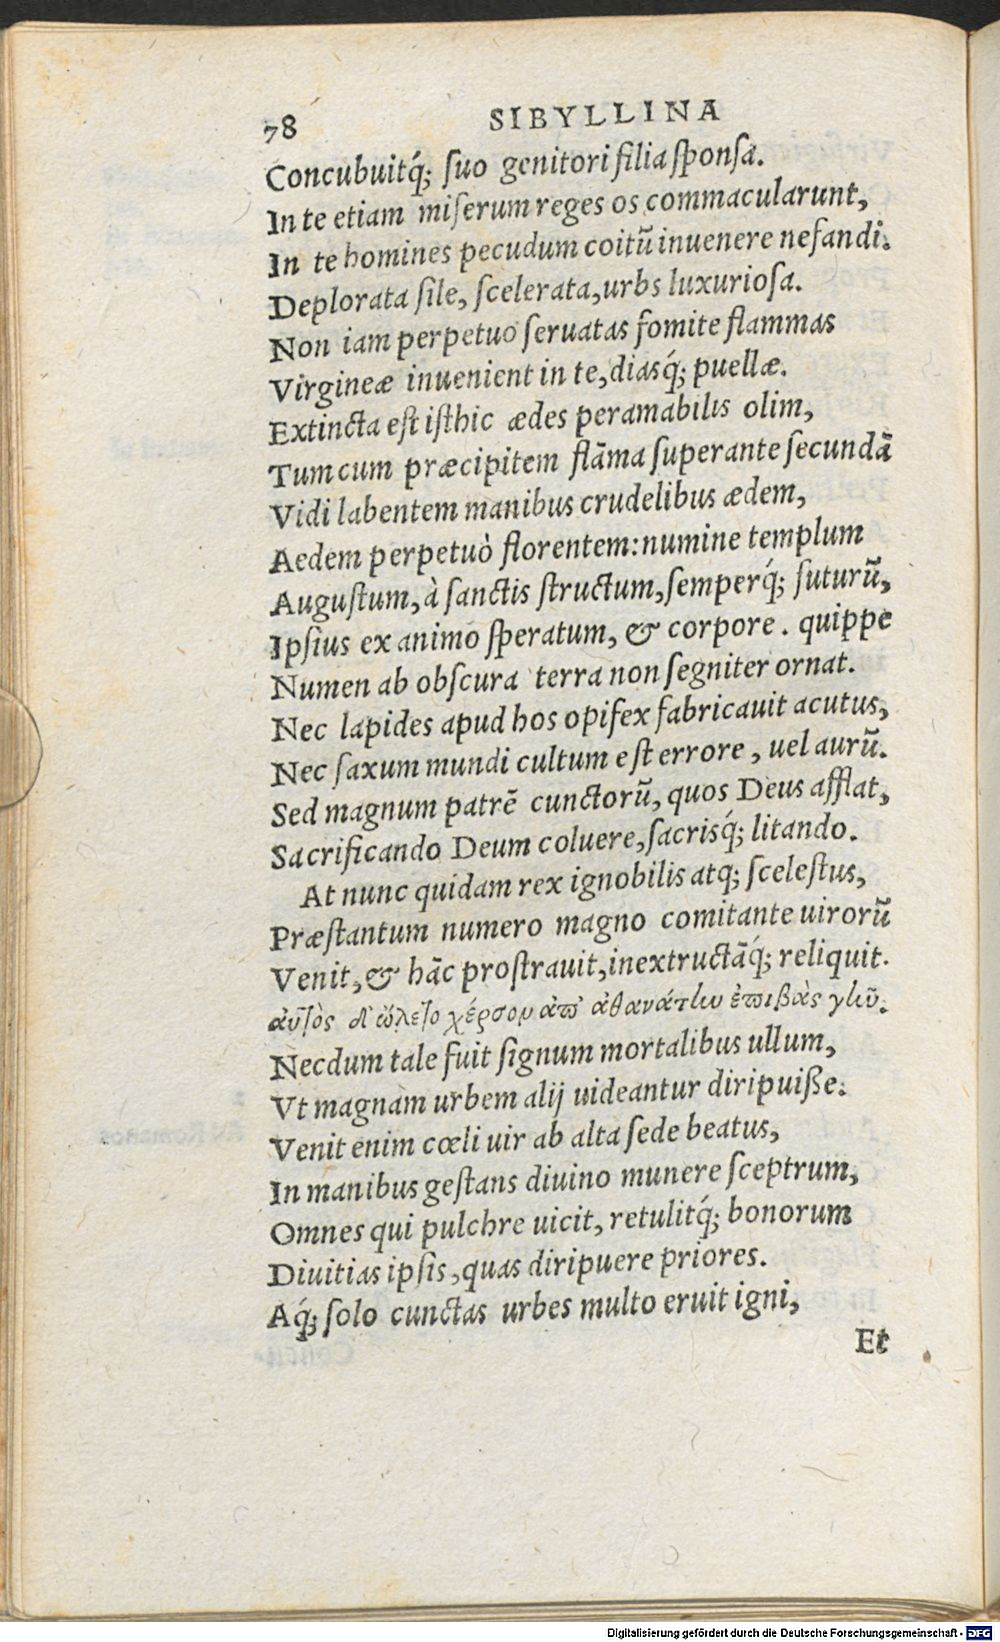 78 SIBYLLINA
Concubuitq́; ſuo genitori filia ſponſa.
In te etiam miſerum reges os commacularunt,
In te homines pecudum coitũ inuenere nefandi.
Deplorata ſile, ſcelerata, urbs luxurioſa.
Non iam perpetuo ſeruatas fomite flammas
Virgineæ inuenient in te, diasq́; puellæ.
Extincta eſt iſthic ædes peramabilis olim,
Tum cum præcipitem flãma ſuperante ſecundã
Vidi labentem manibus crudelibus ædem,
Aedem perpetuò florentem: numine templum
Auguſtum, à ſanctis ſtructum, ſemperq́; futurũ,
Ipſius ex animo ſperatum, & corpore. quippe
Numen ab obſcura terra non ſegniter ornat.
Nec lapides apud hos opifex fabricauit acutus,
Nec ſaxum mundi cultum eſt errore, uel aurũ.
Sed magnum patrẽ cunctorũ, quos Deus afflat,
Sacrificando Deum coluere, ſacrisq́; litando.
At nunc quidam rex ignobilis atq; ſceleſtus,
Præſtantum numero magno comitante uirorũ
Venit, & hãc proſtrauit, inextructãq́; reliquit.
αὐτὸς δ' ὤλετο χέρσου ἀπ' ἀθανάτην ἐπιβὰς γῆν.
Necdum tale fuit ſignum mortalibus ullum,
Vt magnam urbem alij uideantur diripuiße.
Venit enim cœli uir ab alta ſede beatus,
In manibus geſtans diuino munere ſceptrum,
Omnes qui pulchre uicit, retulitq́; bonorum
Diuitias ipſis, quas diripuere priores.
Aq́; ſolo cunctas urbes multo eruit igni,
Et
Digitalisierung gefördert durch die Deutsche Forschungsgemeinschaft - DFG